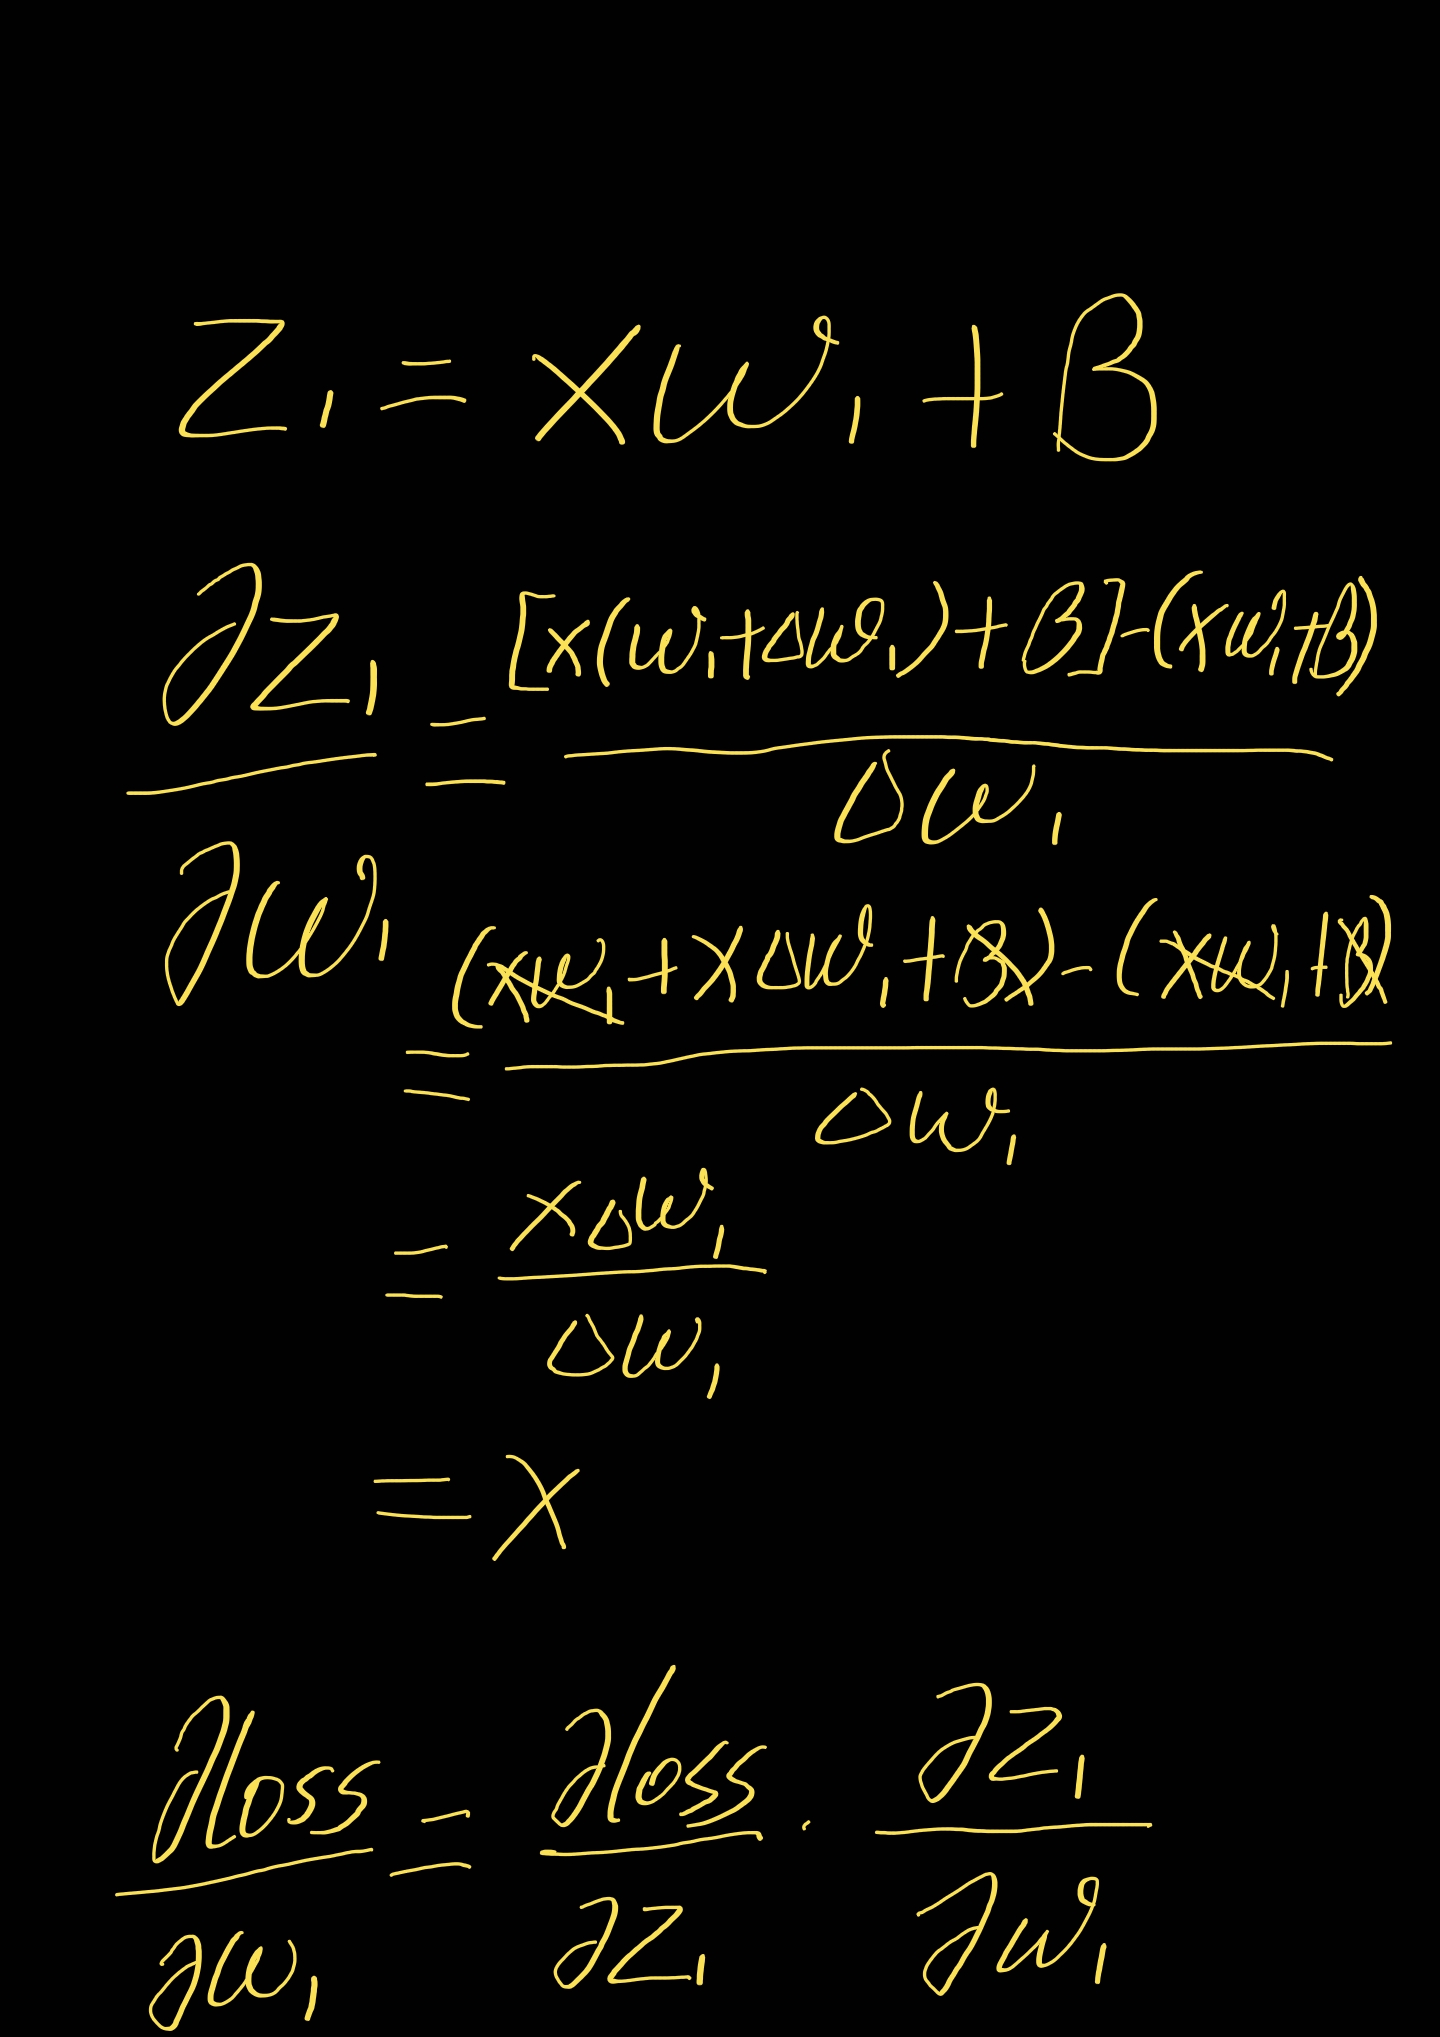 Z₁ = XW₁ + B
∂Z₁/∂W₁ = [X(W₁+ΔW₁)+B]-(XW₁+B) / ΔW₁
= (XW₁+XΔW₁+B)-(XW₁+B) / ΔW₁
= XΔW₁ / ΔW₁
= X
∂loss/∂W₁ = ∂loss/∂Z₁ · ∂Z₁/∂W₁